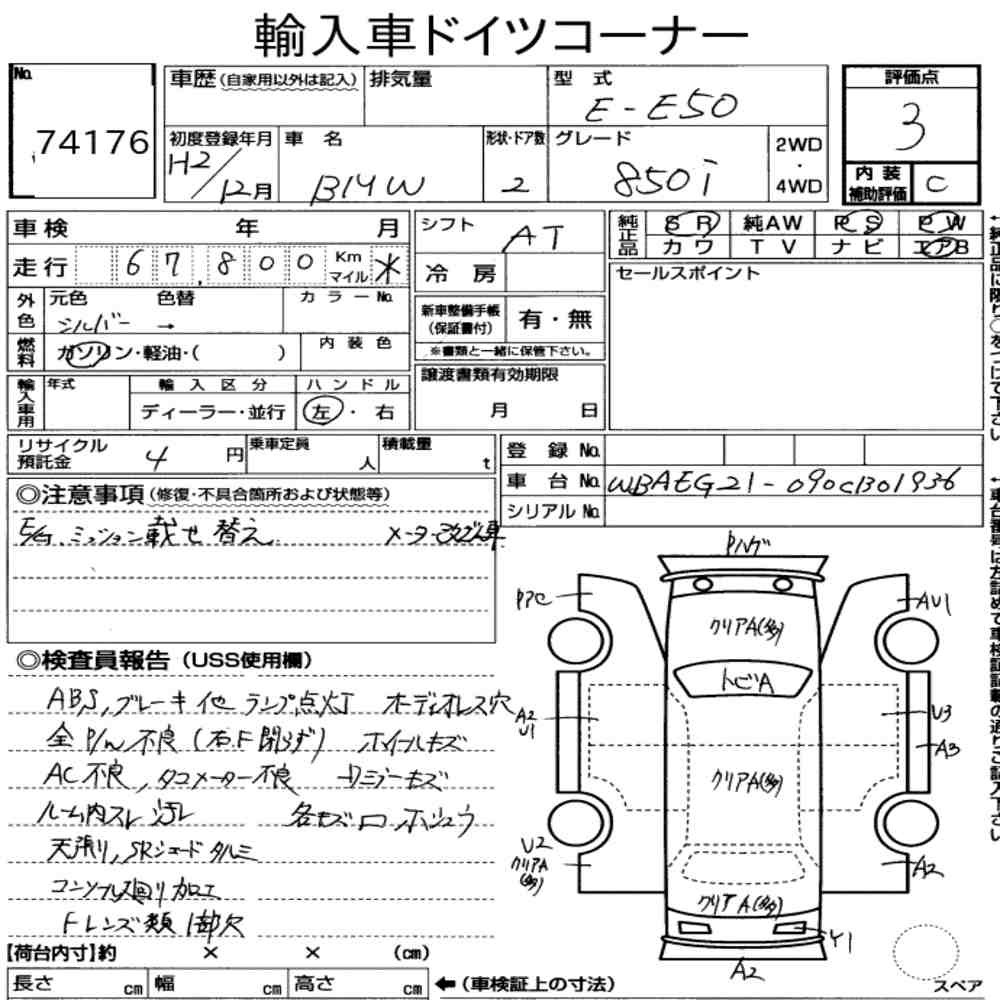 輸入車ドイツコーナー
No. 74176
車歴 (自家用以外は記入) 排気量 型式 E-E50 評価点 3
初度登録年月 H2/12月 車名 BMW 形状・ドア数 2 グレード 850i 2WD・4WD 内装補助評価 C
車検 年 月 シフト AT 純正品 SR 純AW PS PW
走行 67,800 Km マイル ＊ 冷房 カワ TV ナビ エアB
外色 元色 シルバー → 色替 カラーNo. 新車整備手帳 (保証書付) 有・無 セールスポイント
燃料 ガソリン・軽油・( ) 内装色 ※書類と一緒に保管下さい。
輸入車用 年式 輸入区分 ディーラー・並行 ハンドル 左・右 譲渡書類有効期限 月 日
リサイクル預託金 4 円 乗車定員 人 積載量 t 登録No.
車台No. WBAEG21-090CB01936
シリアルNo.
◎注意事項 (修復・不具合箇所および状態等)
E/G、ミッション載せ替え メーター改ざん車
◎検査員報告 (USS使用欄)
ABS,ブレーキ他ランプ点灯 ボディオレス穴
全P/W不良(右F閉らず) ホイールキズ
AC不良,タコメーター不良
ルーム内スレ汚レ 各キズロホシュウ
天張リ,SRシェードタルミ
コンソール廻り加工
Fレンズ類1部欠
【荷台内寸】約 × × (cm)
長さ cm 幅 cm 高さ cm ←(車検証上の寸法)
Pハゲ
PアC
AU1
クリアA(多)
トビA
A2
U1
U3
A3
クリアA(多)
U2
クリアA
(多)
A2
クリアA(多)
Y1
A2
スペア
↑純正品に限り○をつけて下さい
↑車台番号は左詰めで車検証記載の通りご記入下さい